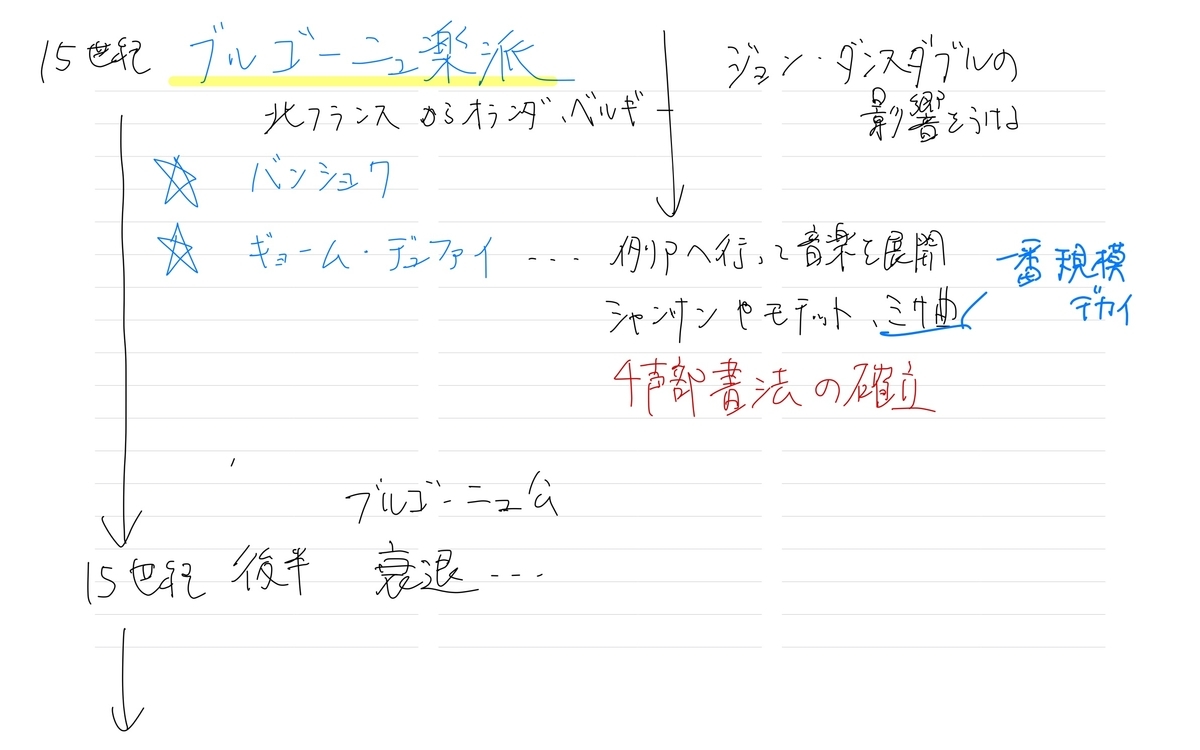 15世紀 ブルゴーニュ楽派
ジョン・ダンスタブルの
影響をうける
北フランスからオランダ、ベルギー
☆ バンショワ
☆ ギョーム・デュファイ ... イタリアへ行って音楽を展開
シャンソンやモテット、ミサ曲
一番規模
デカイ
4声部書法の確立
ブルゴーニュ公
15世紀 後半 衰退...